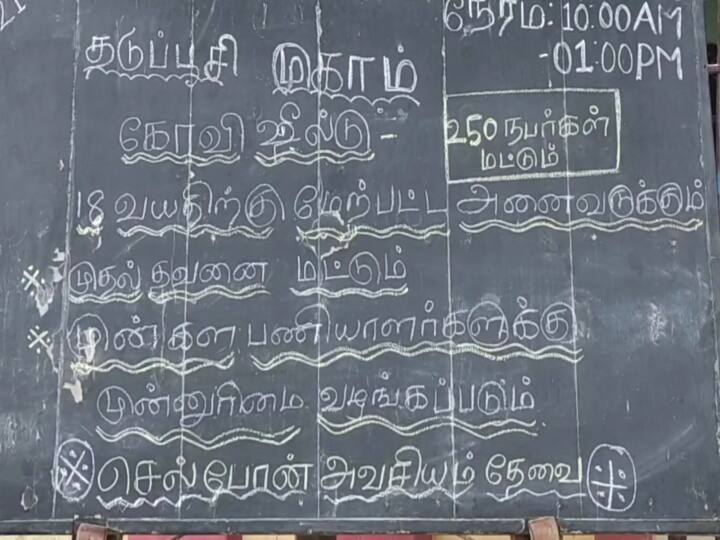 நேரம்: 10:00AM
-01:00PM
தடுப்பூசி முகாம்
கோவி ஷீல்டு -
250 நபர்கள்
மட்டும்
18 வயதிற்கு மேற்பட்ட அனைவருக்கும்
※ முதல் தவணை மட்டும்
※ முன் கள பணியாளர்களுக்கு
முன்னுரிமை வழங்கப்படும்
※ செல்போன் அவசியம் தேவை ※